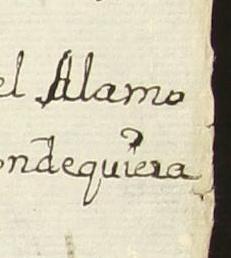 el Alamo
ondequiera